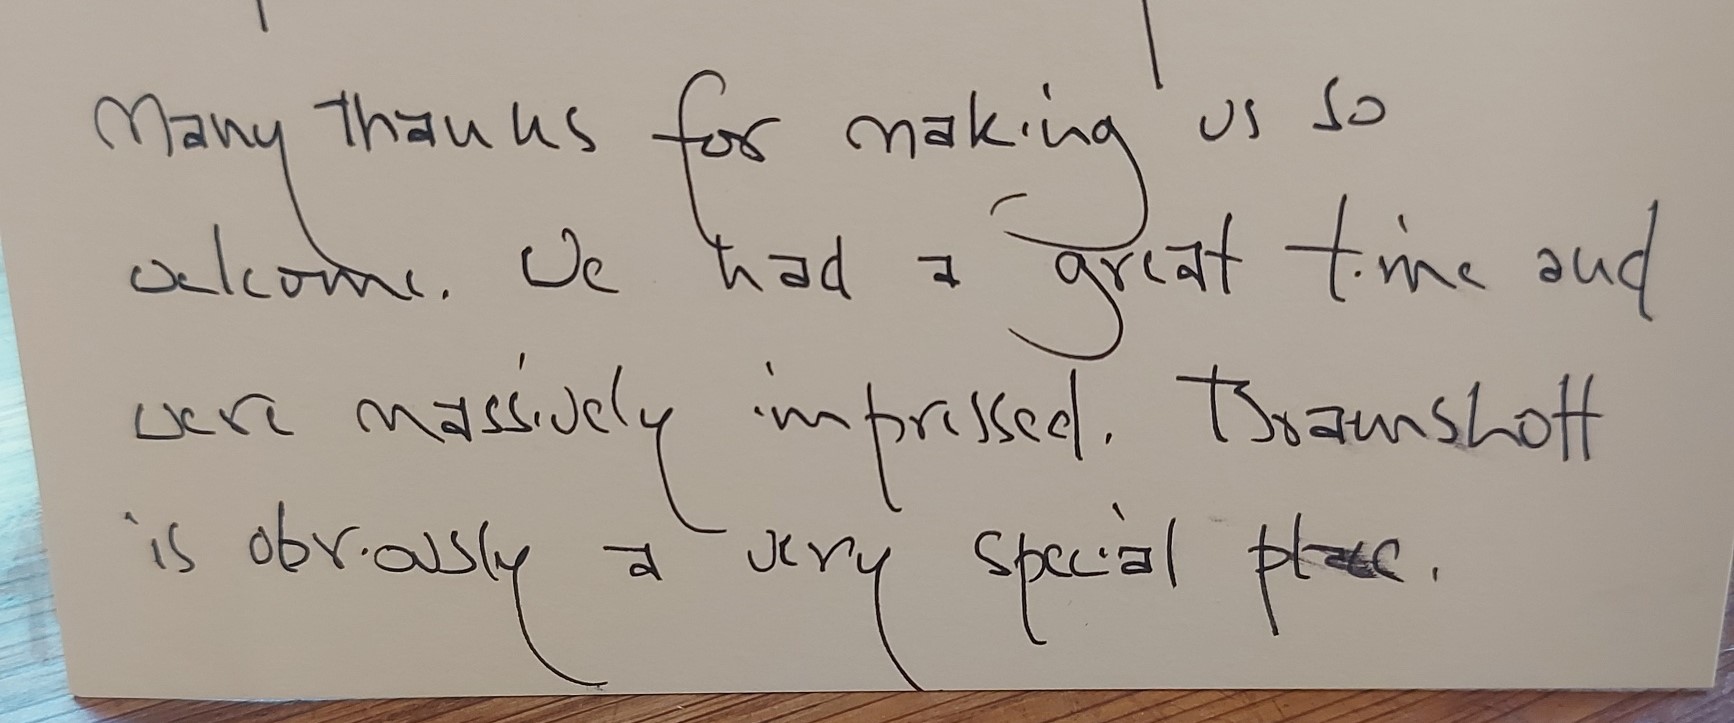 Many thanks for making us so
welcome. We had a great time and
were massively impressed. Bramshott
is obviously a very special place.